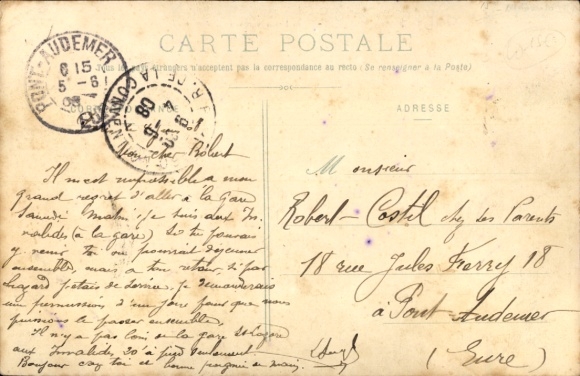 CARTE POSTALE
Tous les pays étrangers n'acceptent pas la correspondance au recto (Se renseigner à la Poste)
CORRESPONDANCE
ADRESSE
PONT-AUDEMER
6 15
5 - 6
08
R. DE LA CONVEN
08
Mon cher Robert
Il m'est impossible a mon
grand regret d'aller a la gare
Samedi matin, je suis aux In
valides (à la gare) Si tu pouvais
y venir toi on pourrait déjeuner
ensemble, mais a ton retour, si par
hazard j'etais de je demanderais
un permission d'un jour pour que nous
puissions le passer ensemble,
Il n'y a pas loin de la gare St Lazare
aux Invalides, 20' à pied seulement.
Bonjour chez toi et bonne poignée de main.
Monsieur
Robert Costil chez ses Parents
18 rue Jules Ferry 18
à Pont-Audemer
(Eure)